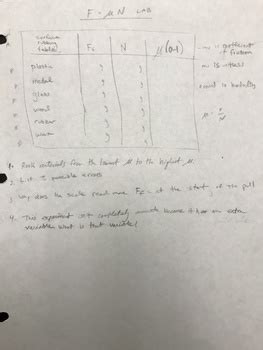 F = μN LAB
surface
rubbing
Ff N μ(0-1)
plastic
metal
glass
wood
rubber
wax
μ is coefficient
of friction
μ is unitless
μ = F/N
1. Rank materials from the lowest μ to the highest μ.
2. List 3 possible errors
3. Why does the scale read more Ff at the start of the pull
4. This experiment isn't completely accurate because it has an extra
variable. What is that variable?